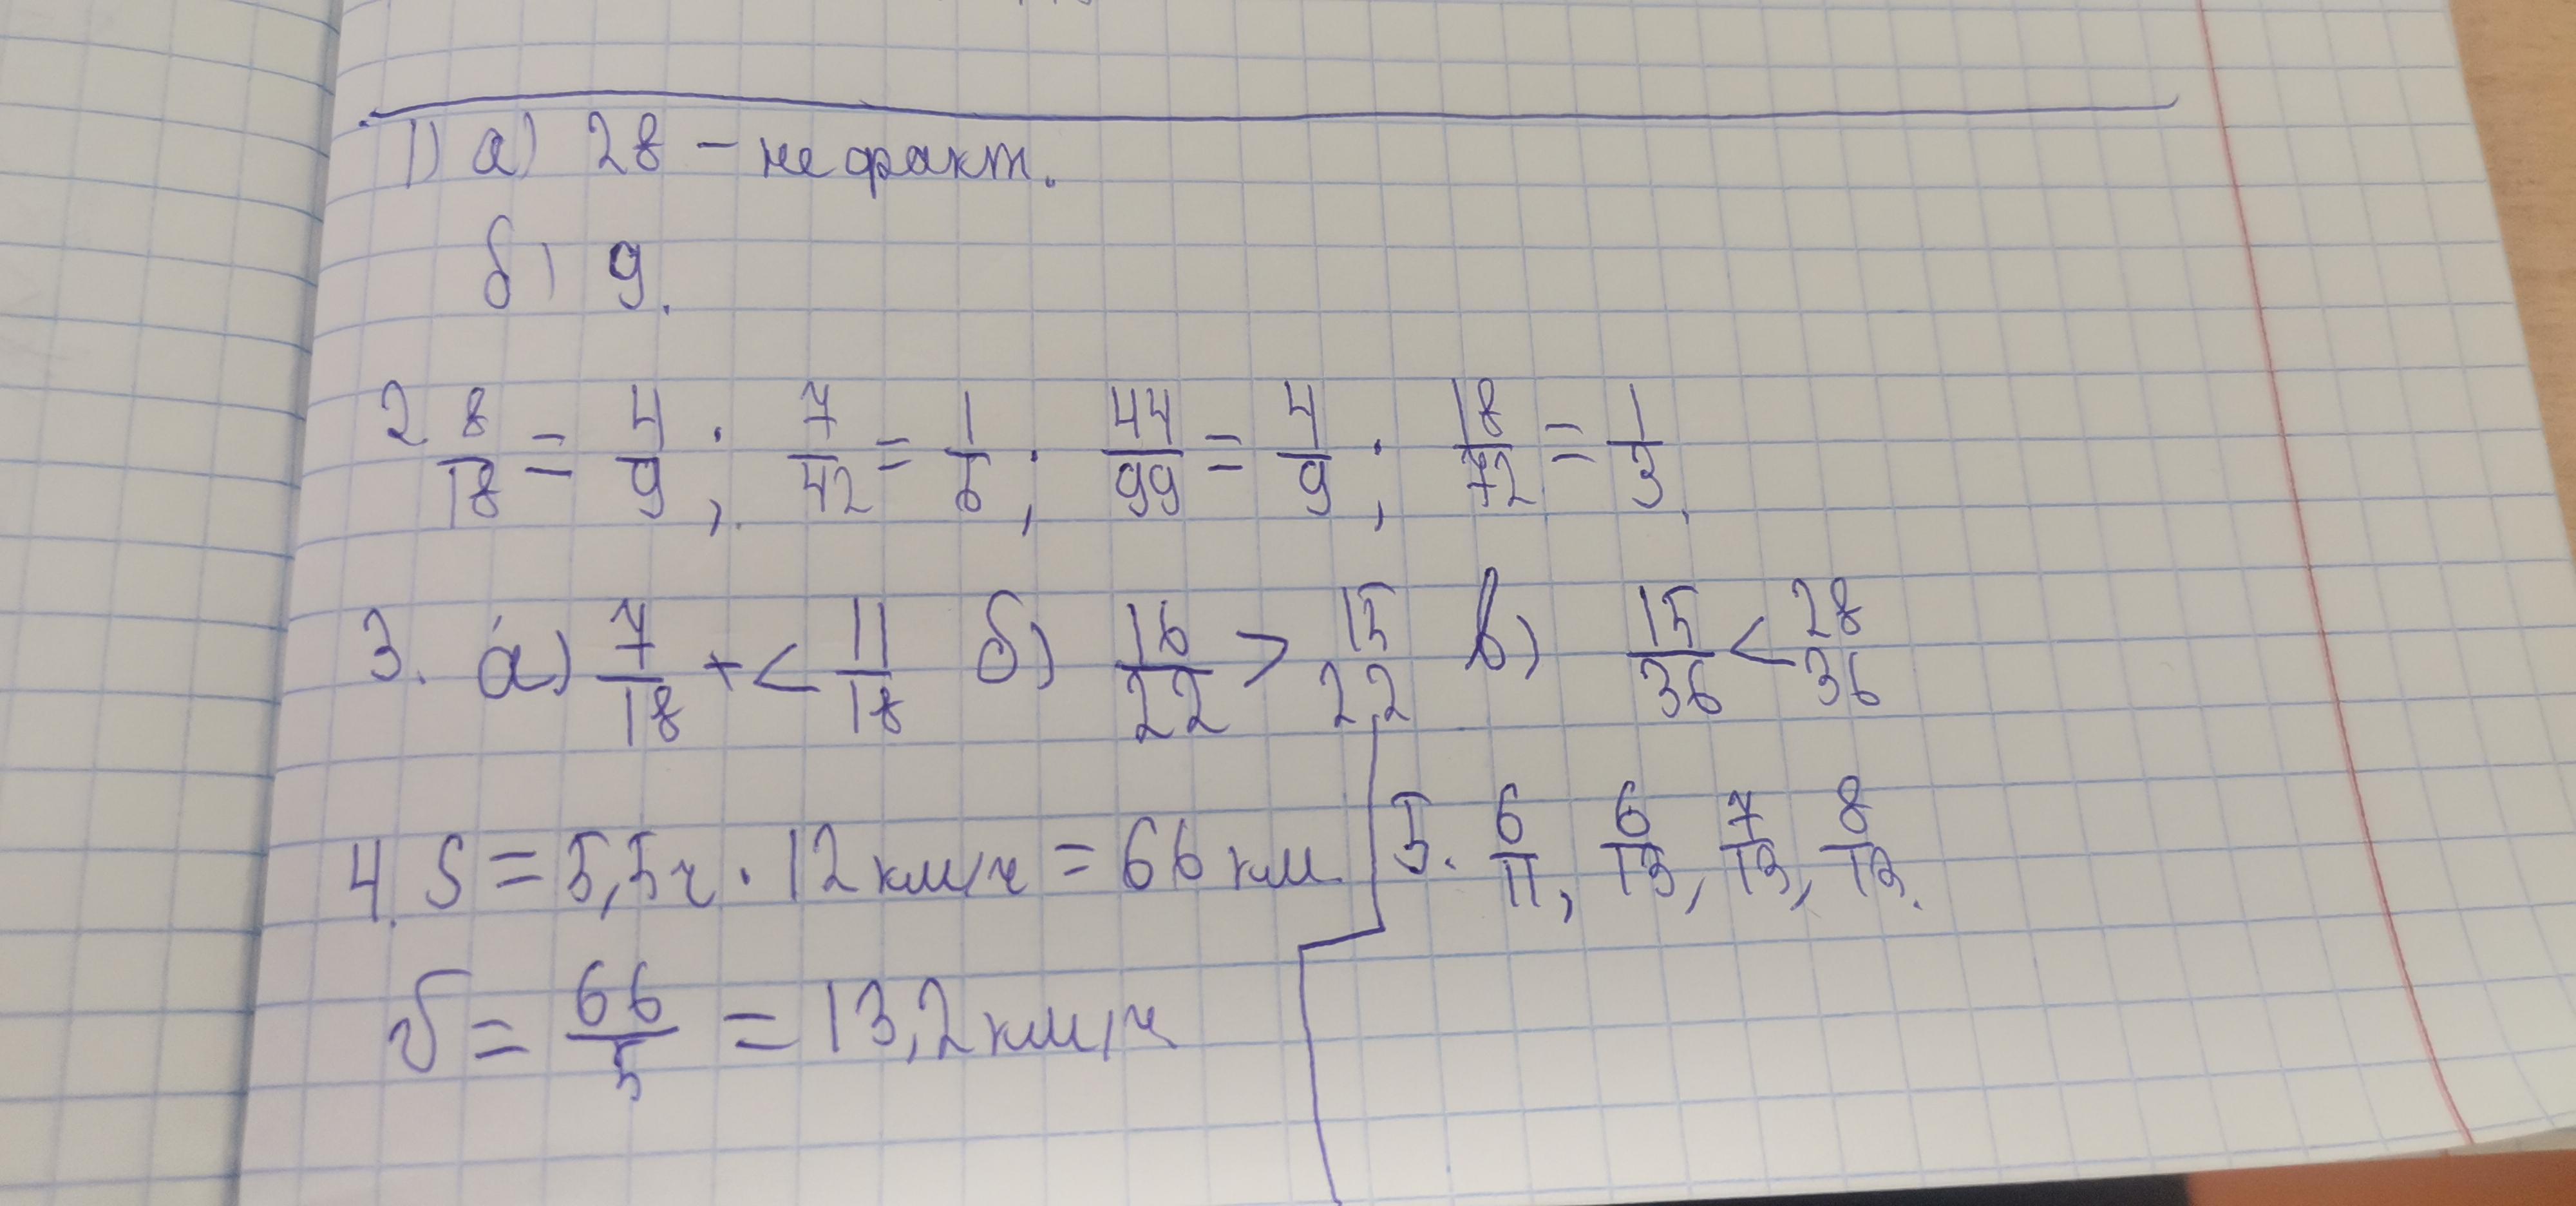 1) а) 28 – не факт.
б) 9.
2 8/18 = 4/9; 7/42 = 1/6; 44/99 = 4/9; 18/72 = 1/3.
3. а) 7/18 + < 11/18 б) 16/22 > 15/22 в) 15/36 < 28/36
4. S = 5,5ч · 12 км/ч = 66 км.
5. 6/11, 6/13, 7/13, 8/13.
v = 66/5 = 13,2 км/ч